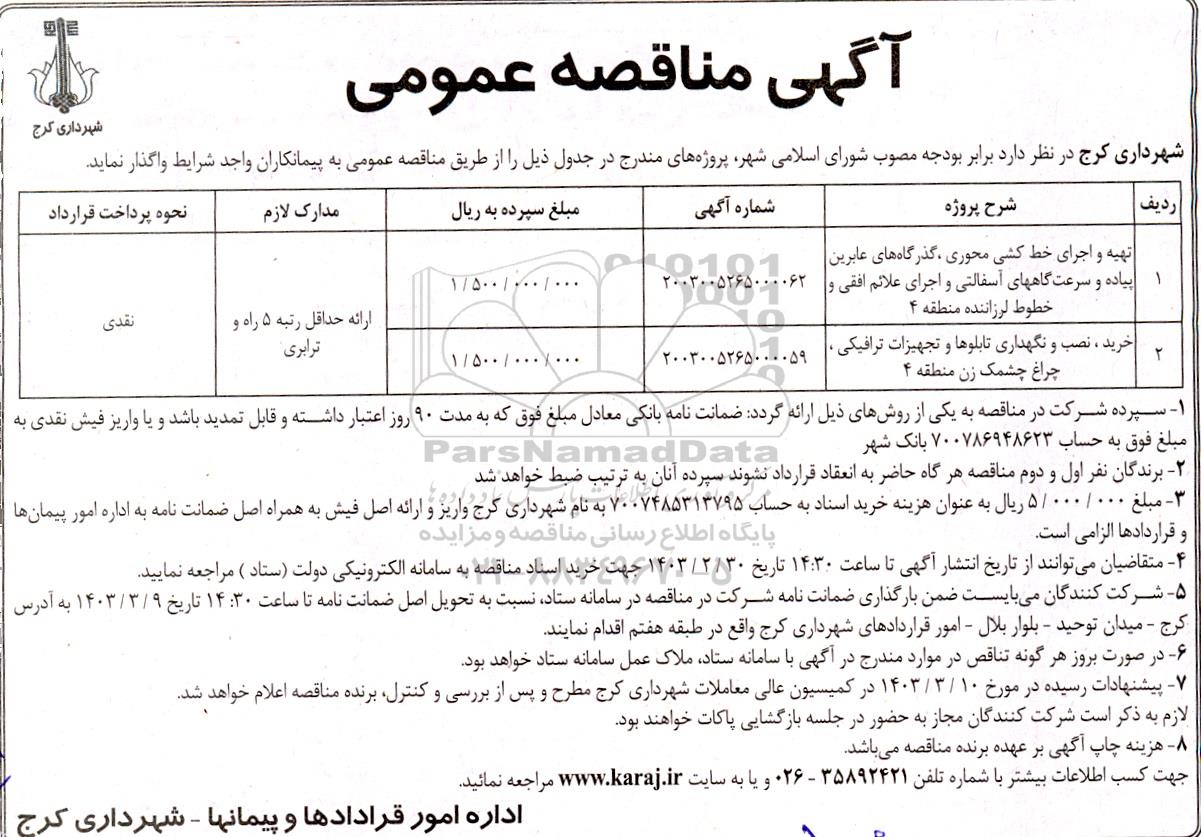 آگهی مناقصه عمومی
شهرداری کرج
شهرداری کرج در نظر دارد برابر بودجه مصوب شورای اسلامی شهر، پروژه‌های مندرج در جدول ذیل را از طریق مناقصه عمومی به پیمانکاران واجد شرایط واگذار نماید.
ردیف شرح پروژه شماره آگهی مبلغ سپرده به ریال مدارک لازم نحوه پرداخت قرارداد
تهیه و اجرای خط کشی محوری ،گذرگاه‌های عابرین
۱ پیاده و سرعت‌گاههای آسفالتی و اجرای علائم افقی و ۲۰۰۳۰۰۵۲۶۵۰۰۰۰۶۲ ۱/۵۰۰/۰۰۰/۰۰۰
خطوط لرزاننده منطقه ۴
ارائه حداقل رتبه ۵ راه و
ترابری
نقدی
خرید ، نصب و نگهداری تابلوها و تجهیزات ترافیکی ،
۲ چراغ چشمک زن منطقه ۴ ۲۰۰۳۰۰۵۲۶۵۰۰۰۰۵۹ ۱/۵۰۰/۰۰۰/۰۰۰
۱- سپرده شرکت در مناقصه به یکی از روش‌های ذیل ارائه گردد: ضمانت نامه بانکی معادل مبلغ فوق که به مدت ۹۰ روز اعتبار داشته و قابل تمدید باشد و یا واریز فیش نقدی به
مبلغ فوق به حساب ۷۰۰۷۸۶۹۴۸۶۲۳ بانک شهر
ParsNamadData
۲- برندگان نفر اول و دوم مناقصه هر گاه حاضر به انعقاد قرارداد نشوند سپرده آنان به ترتیب ضبط خواهد شد
۳- مبلغ ۵/۰۰۰/۰۰۰ ریال به عنوان هزینه خرید اسناد به حساب ۷۰۰۷۴۸۵۳۱۳۷۹۵ به نام شهرداری کرج واریز و ارائه اصل فیش به همراه اصل ضمانت نامه به اداره امور پیمان‌ها
و قراردادها الزامی است.
پایگاه اطلاع رسانی مناقصه و مزایده
۴- متقاضیان می‌توانند از تاریخ انتشار آگهی تا ساعت ۱۴:۳۰ تاریخ ۱۴۰۳/۲/۳۰ جهت خرید اسناد مناقصه به سامانه الکترونیکی دولت (ستاد ) مراجعه نمایید.
۵- شرکت کنندگان می‌بایست ضمن بارگذاری ضمانت نامه شرکت در مناقصه در سامانه ستاد، نسبت به تحویل اصل ضمانت نامه تا ساعت ۱۴:۳۰ تاریخ ۱۴۰۳/۳/۹ به آدرس
کرج - میدان توحید - بلوار بلال - امور قراردادهای شهرداری کرج واقع در طبقه هفتم اقدام نمایند.
۶- در صورت بروز هر گونه تناقص در موارد مندرج در آگهی با سامانه ستاد، ملاک عمل سامانه ستاد خواهد بود.
۷- پیشنهادات رسیده در مورخ ۱۴۰۳/۳/۱۰ در کمیسیون عالی معاملات شهرداری کرج مطرح و پس از بررسی و کنترل، برنده مناقصه اعلام خواهد شد.
لازم به ذکر است شرکت کنندگان مجاز به حضور در جلسه بازگشایی پاکات خواهند بود.
۸- هزینه چاپ آگهی بر عهده برنده مناقصه می‌باشد.
جهت کسب اطلاعات بیشتر با شماره تلفن ۳۵۸۹۲۴۲۱ - ۰۲۶ و یا به سایت www.karaj.ir مراجعه نمائید.
اداره امور قرادادها و پیمانها - شهرداری کرج